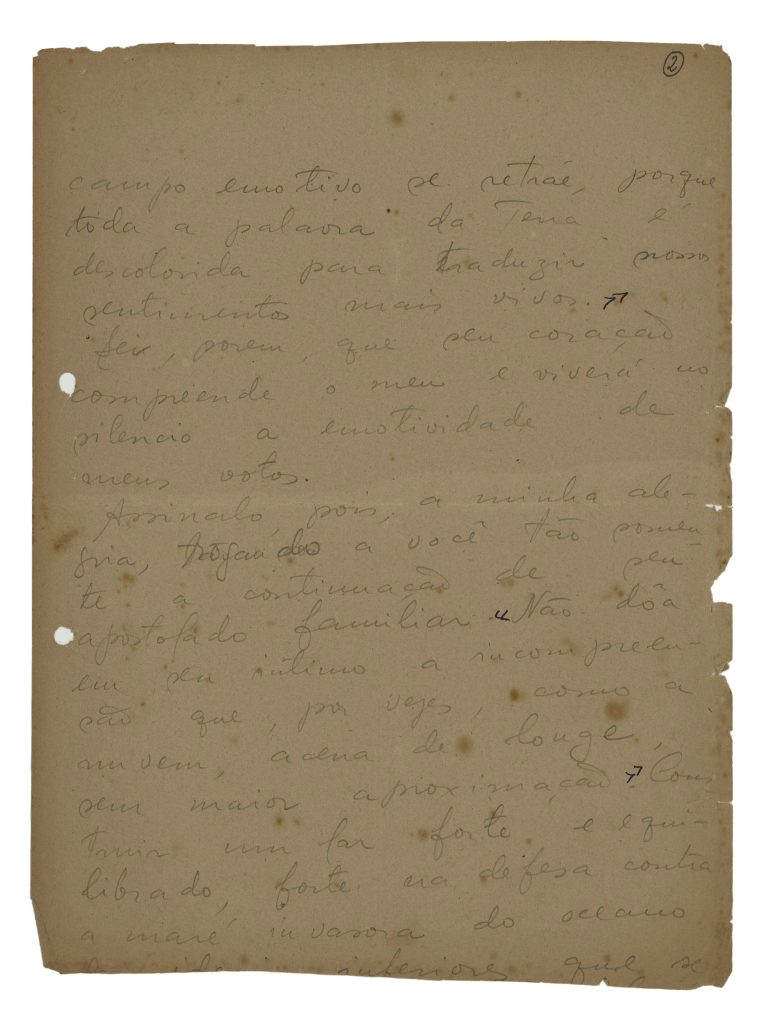 2
campo emotivo se retráe, porque
toda a palavra da Terra é
descolorida para traduzir nossos
sentimentos mais vivos.
Sei, porem, que seu coração
compreende o meu e viverá no
silencio a emotividade de
meus votos.
Assinalo, pois, a minha ale-
gria, rogando a você tão somen
te a continuação de seu
apostolado familiar. "Não dôa
em seu intimo a incompreen-
são que, por vezes, como a
nuvem, acena de longe,
sem maior aproximação. Cons
truir um lar forte e equi-
librado, forte na defesa contra
a maré invasora do oceano
de interiores que se